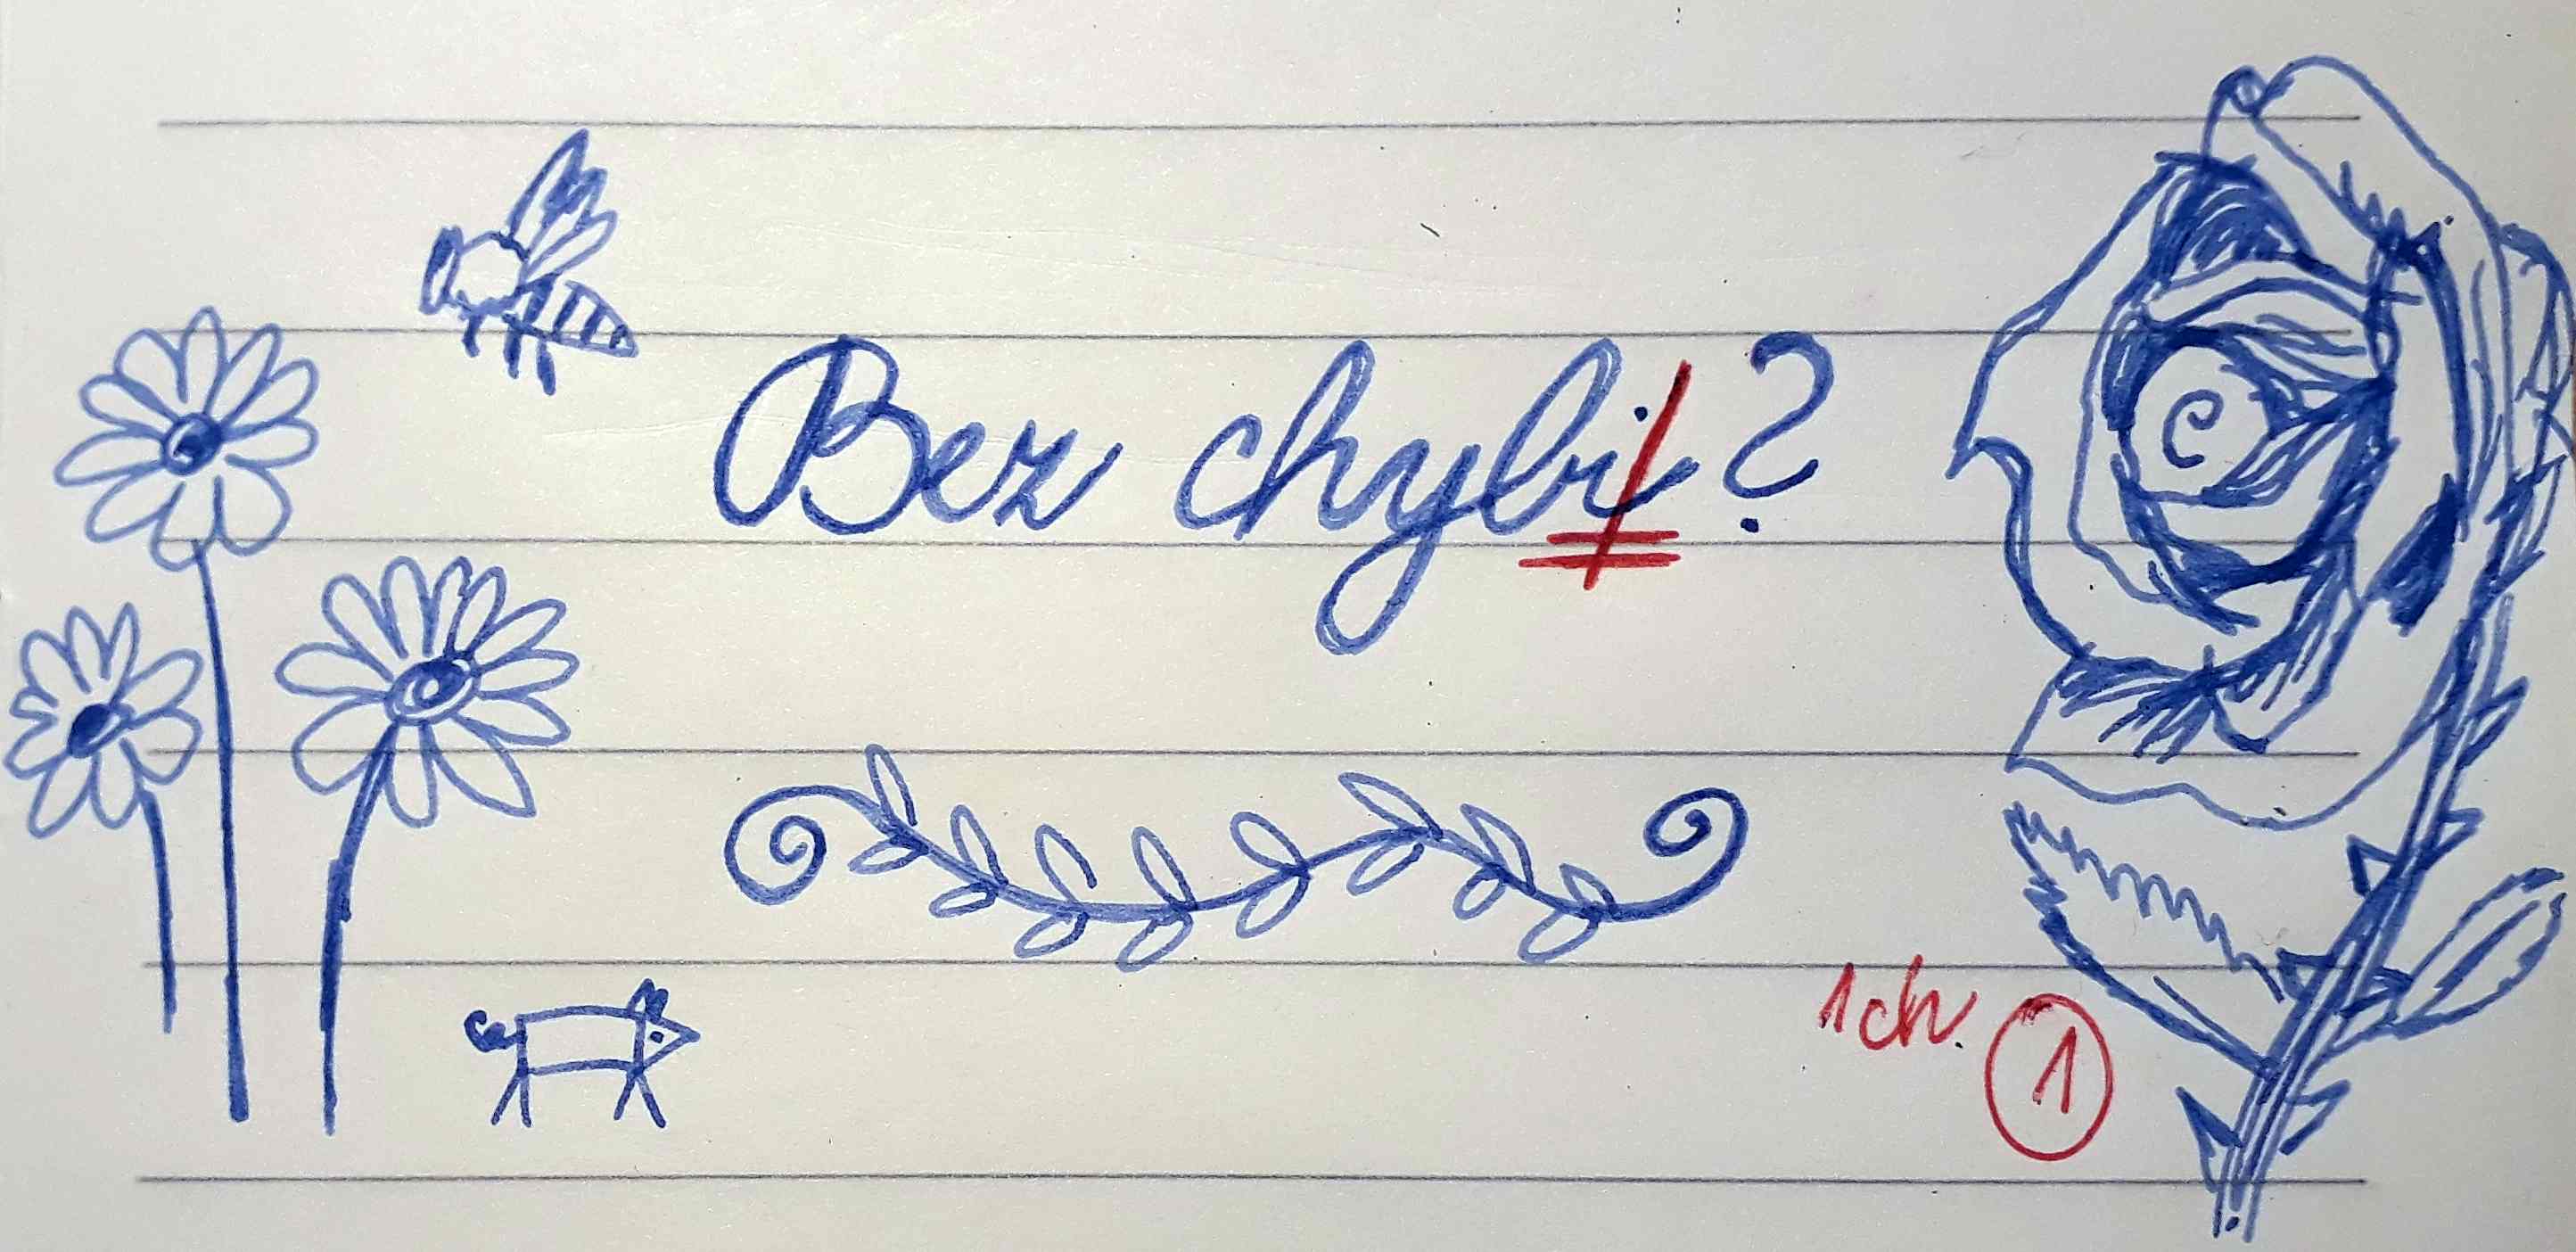 Bez chybi?
1ch.
1